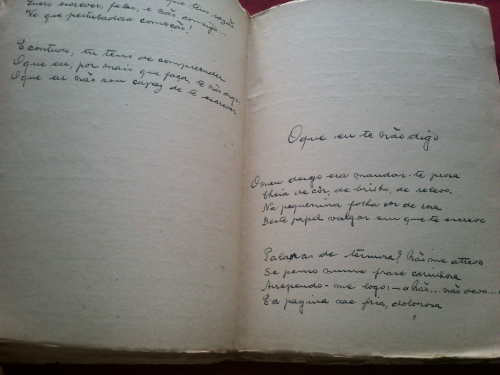 que tem razão
Quero escrever, falar, e não consigo.
Vê que perturbadora comoção!
E contudo, tu tens de compreender
O que eu, por mais que faça, te não digo,
O que eu não sou capaz de te escrever
O que eu te não digo
O meu desejo era mandar-te prosa
Cheia de côr, de brilho, de relevo,
Na pequenina folha côr de rosa
Deste papel vulgar em que te escrevo
Palavras de ternura? Não me atrevo
Se penso numa frase carinhosa
Arrependo-me logo: — ah não... não devo...
E a pagina cae fria, dolorosa